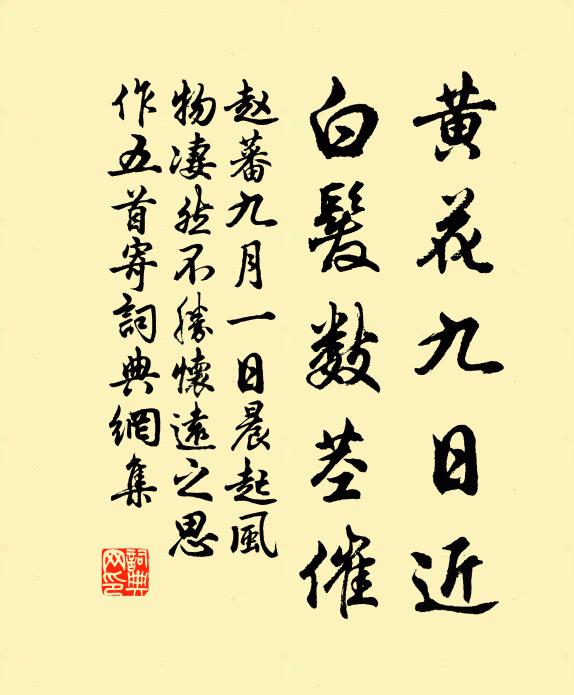 黄花九日近
白髮数茎催
赵蕃九月一日晨起風
物凄然不勝懷遠之思
作五首寄詞典網集
詞典
网印